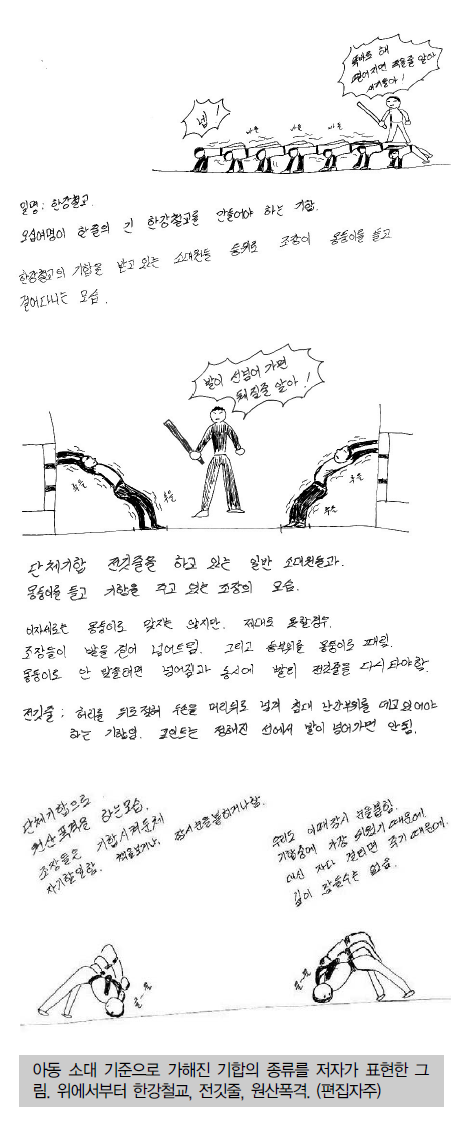 똑바로 해
떨어지면 죽을줄 알아
새끼들아!
넵!
바들
바들
바들
일명: 한강철교.
오십여명이 한줄의 긴 한강철교를 만들어야 하는 기합.
한강철교의 기합을 받고 있는 소대원들 등위로 조장이 몽둥이를 들고
걸어다니는 모습.
발이 선넘어 가면
뒤질줄 알아!
후들
후들
후들
후들
단체기합 전깃줄을 하고 있는 일반 소대원들과.
몽둥이를 들고 기합을 주고 있는 조장의 모습.
이자세로는 몽둥이로 맞지는 않지만. 제대로 못할경우.
조장들이 발을 걷어 넘어트림. 그리고 등부위를 몽둥이로 때림.
몽둥이로 안 맞을려면 넘어짐과 동시에 빨리 전깃줄을 다시 타야함.
전깃줄: 허리를 뒤로젖혀 두손을 머리뒤로 넘겨 침대 난간부위를 대고있어야
하는 기합임. 포인트는 정해진 선에서 발이 넘어가면 안됨.
단체기합으로
원산폭격을 하는모습.
조장들은 기합시켜논체
자기할일함. 책을보거나. 잠시눈을붙이거나함.
우리도 이때잠시 눈을붙힘.
기합중에 가장 쉬웠기 때문에.
대신 자다 걸리면 죽기 때문에.
깊이 잠들수는 없음.
쿨~쿨
쿨~쿨
아동 소대 기준으로 가해진 기합의 종류를 저자가 표현한 그
림. 위에서부터 한강철교, 전깃줄, 원산폭격. (편집자주)